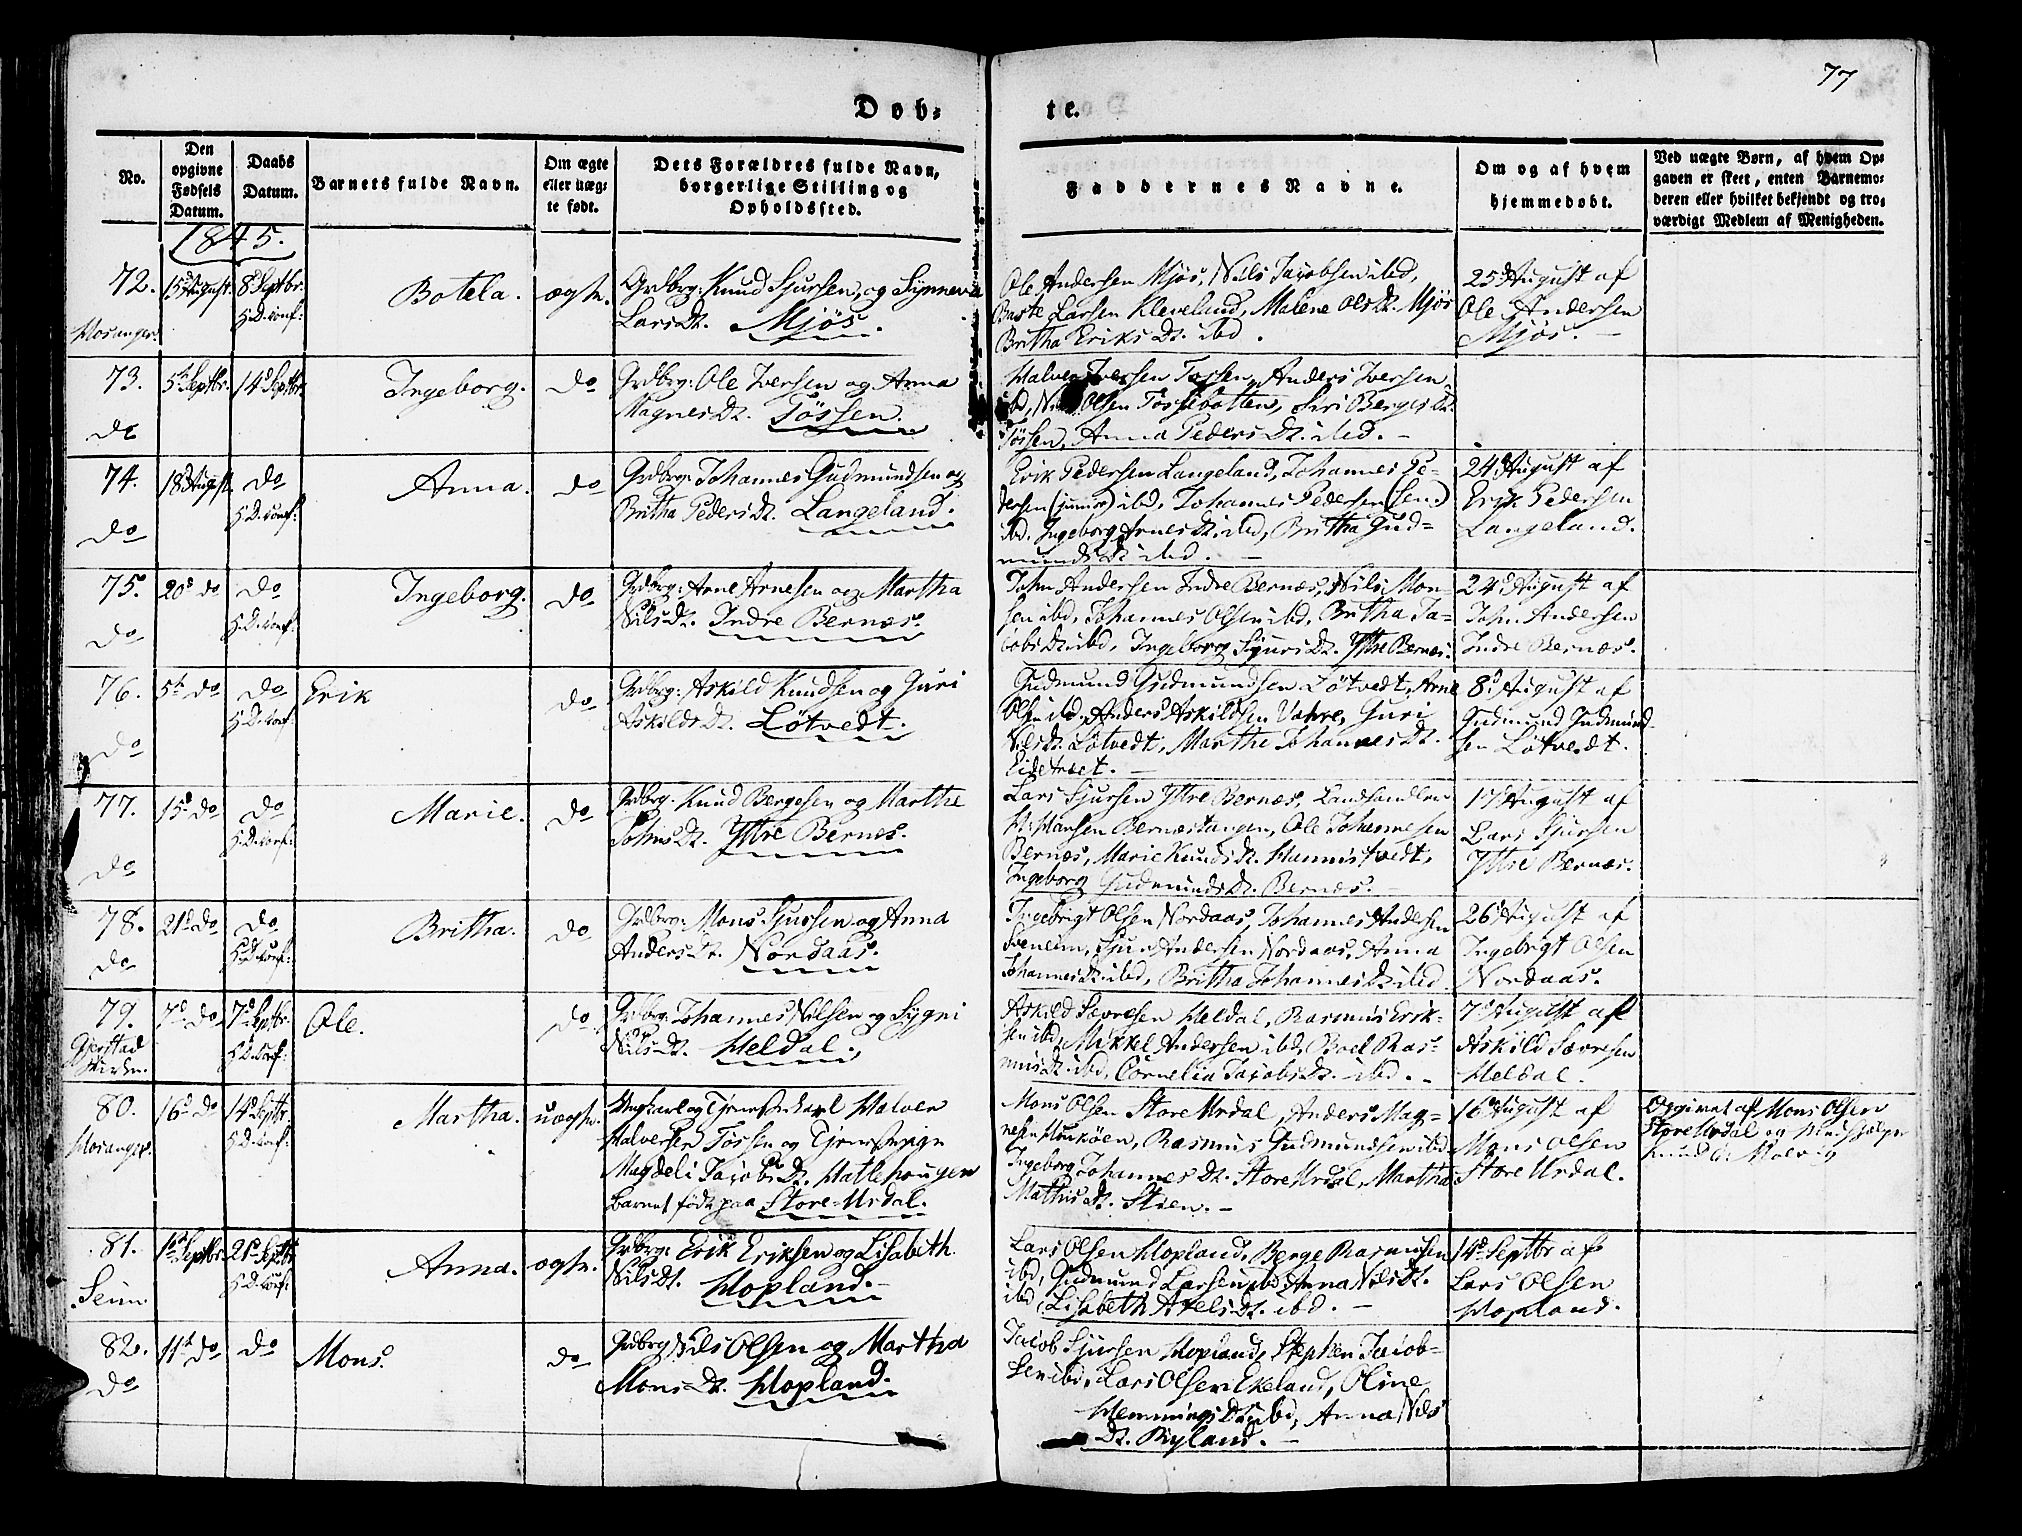 77
Døb-
te.
No.
Den opgivne Fødsels Datum.
Daabs Datum.
Barnets fulde Navn.
Om ægte eller uægte født.
Dets Forældres fulde Navn, borgerlige Stilling og Opholdssted.
Faddernes Navne.
Om og af hvem hjemmedøbt.
Ved uægte Børn, af hvem Opgaven er skeet, enten Barnemoderen eller hvilket bekjendt og troværdigt Medlem af Menigheden.
1845.
72.
Hosanger.
15d August.
8d Septbr.
H.D. conf:
Botela.
ægte.
Grdbrg: Knud Sjursen og Synneva
Larsdt. Mjøs.
Ole Andersen Mjøs, Nils Jacobsen ibd,
Baste Larsen Kleveland, Malene Olsdt. Mjøs
Britha Eriksdt. ibd.
25d August af
Ole Andersen
Mjøs.
73.
do
5te Septbr.
14d Septbr.
Ingeborg.
do
Grdbrg: Ole Iversen og Anna
Magnesdt. Tøssen.
Halver Iversen Tøssen, Anders Iversen
ibd, Nils Olsen Tøssebotten, Siri Bergesdt.
Tøssen, Anna Pedersdt. ibd.
74.
do
18d August
do
H.D. conf:
Anna.
do
Grdbrg: Johannes Gudmundsen og
Britha Pedersdt. Langeland.
Erik Pedersen Langeland, Johannes Pe-
dersen (junior) ibd, Johannes Pedersen (Sen:)
ibd. Ingeborg Arnesdt. ibd, Britha Gud-
mundsdt. ibd.
24d August af
Erik Pedersen
Langeland.
75.
do
20d do
do
H.D. conf:
Ingeborg.
do
Grdbrg: Arne Arnesen og Martha
Nilsdt. Indre Bernæs.
John Andersen Indre Bernæs, Nils Mon-
sen ibd, Johannes Olsen ibd, Britha Ja-
cobsdt. ibd, Ingeborg Sjursdt. Ytre Bernæs.
24d August af
John Andersen
Indre Bernæs.
76.
do
5te do
do
H.D. conf:
Erik
do
Grdbrg: Askild Knudsen og Guri
Askildsdt. Løtvedt.
Gudmund Gudmundsen Løtvedt, Arne
Olsen ibd, Anders Askildsen Vahre, Guri
Nilsdt. Løtvedt, Marthe Johannesdt.
Eidetræet.
8d August af
Gudmund Gudmund-
sen Løtvedt.
77.
do
15d do
do
H.D. conf:
Marie.
do
Grdbrg: Knud Bergesen og Marthe
Johnsdt. Ytre Bernæs.
Lars Sjursen Ytre Bernæs, Landhandler
H: Hansen Bernæstangen, Ole Johannesen
Bernæs, Marie Knudsdt. Hannistvedt,
Ingeborg Gudmundsdt. Bernæs.
17d August af
Lars Sjursen
Ytre Bernæs.
78.
do
21d do
do
H.D. conf:
Britha.
do
Grdbrg: Mons Sjursen og Anna
Andersdt. Nordaas.
Ingebrigt Olsen Nordaas, Johannes Andersen
Soeneim, Sjur Andersen Nordaas, Anna
Johannesdt. ibd, Britha Johannesdt. ibd.
26d August af
Ingebrigt Olsen
Nordaas.
79.
Gjerstad
Kirke.
7d do
7d Septbr.
H.D. conf:
Ole.
do
Grdbrg: Johannes Nilsen og Sygni
Nilsdt. Heldal.
Askild Sevresen Heldal, Rasmus Erik-
sen ibd, Mikkel Andersen ibd, Boel Ras-
musdt. ibd, Cornelia Jacobsdt. ibd.
7d August af
Askild Sævresen
Heldal.
80.
Hosanger.
16d do
14d Septbr.
H.D. conf:
Martha.
uægte.
Ungkarl og Tjenestekarl Halver
Halversen Tøssen og Tjenestepige
Magdeli Jacobsdt. Hatlehougen
barnet født paa Store-Urdal.
Mons Olsen Store Urdal, Anders Mag-
nesen Munkøen, Rasmus Gudmundsen ibd
Ingeborg Johannesdt. Store Urdal, Martha
Mathisdt. Stien.
16d August af
Mons Olsen
Store Urdal.
Opgivet af Mons Olsen
Store Urdal og
81.
Seim
1te Septbr.
21d Septbr
H.D. conf:
Anna.
ægte.
Grdbrg: Erik Eriksen og Lisabeth
Nilsdt. Hopland.
Lars Olsen Hopland, Berge Rasmusen
ibd, Gudmund Larsen ibd, Anna Nilsdt.
ibd, Lisabeth Axelsdt. ibd.
14d Septbr af
Lars Olsen
Hopland.
82.
do
11te do
do
Mons.
do
Grdbrg Nils Olsen og Martha
Monsdt. Hopland.
Jacob Sjursen Hopland, Stephen Jacob-
sen ibd, Lars Olsen Ekeland, Oline
Hemmingsdt. ibd, Anna Nils
dt. Ryland.